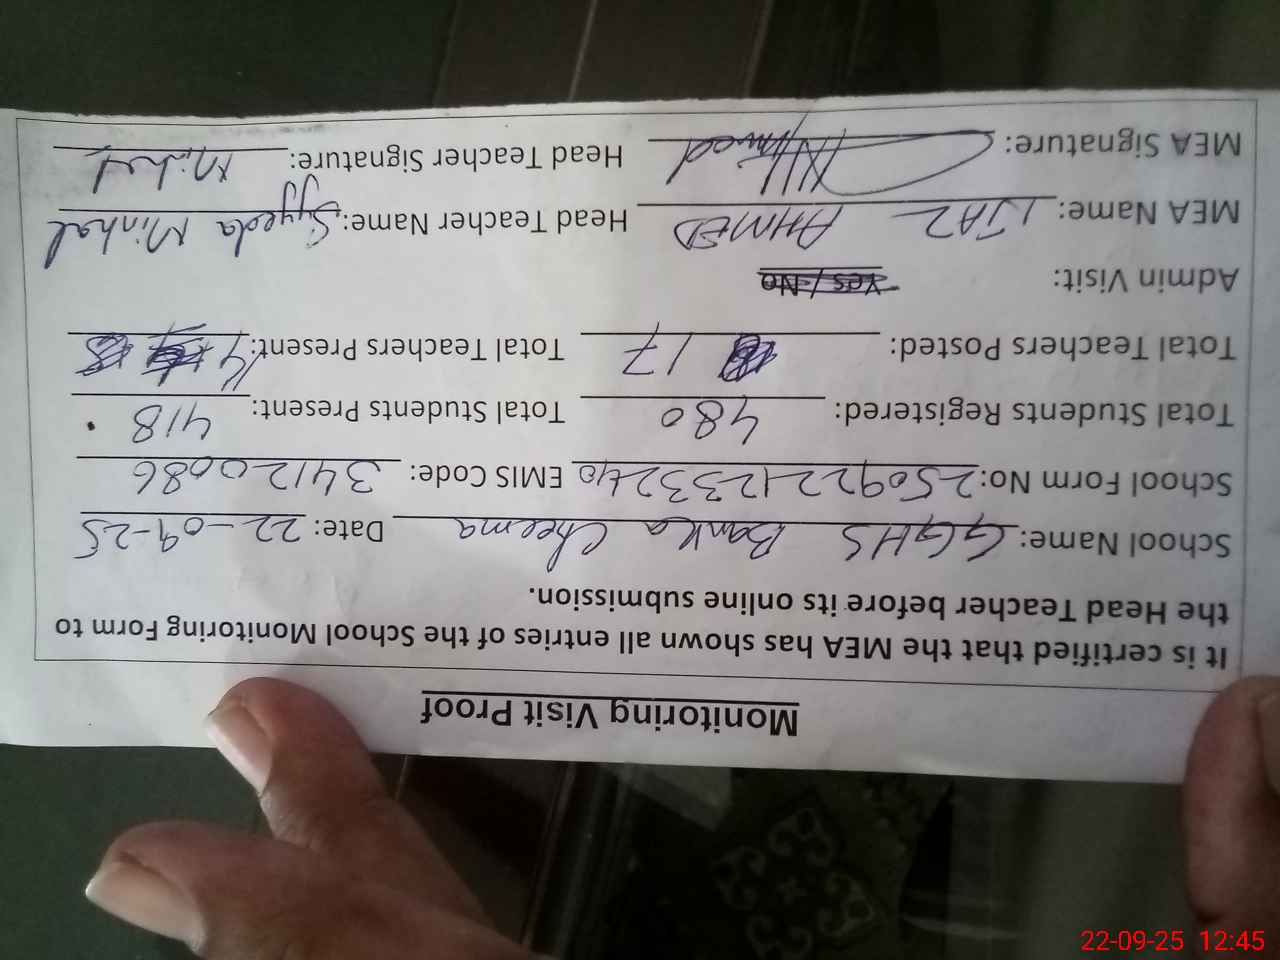 Monitoring Visit Proof
It is certified that the MEA has shown all entries of the School Monitoring Form to
the Head Teacher before its online submission.
School Name: GGHS Banka Cheema Date: 22-09-25
School Form No: 2509221233240 EMIS Code: 34120086
Total Students Registered: 480 Total Students Present: 418
Total Teachers Posted: 17 Total Teachers Present:
Admin Visit: Yes / No
MEA Name: IJAZ AHMED Head Teacher Name: Syeda Minhal
MEA Signature: Head Teacher Signature:
22-09-25 12:45